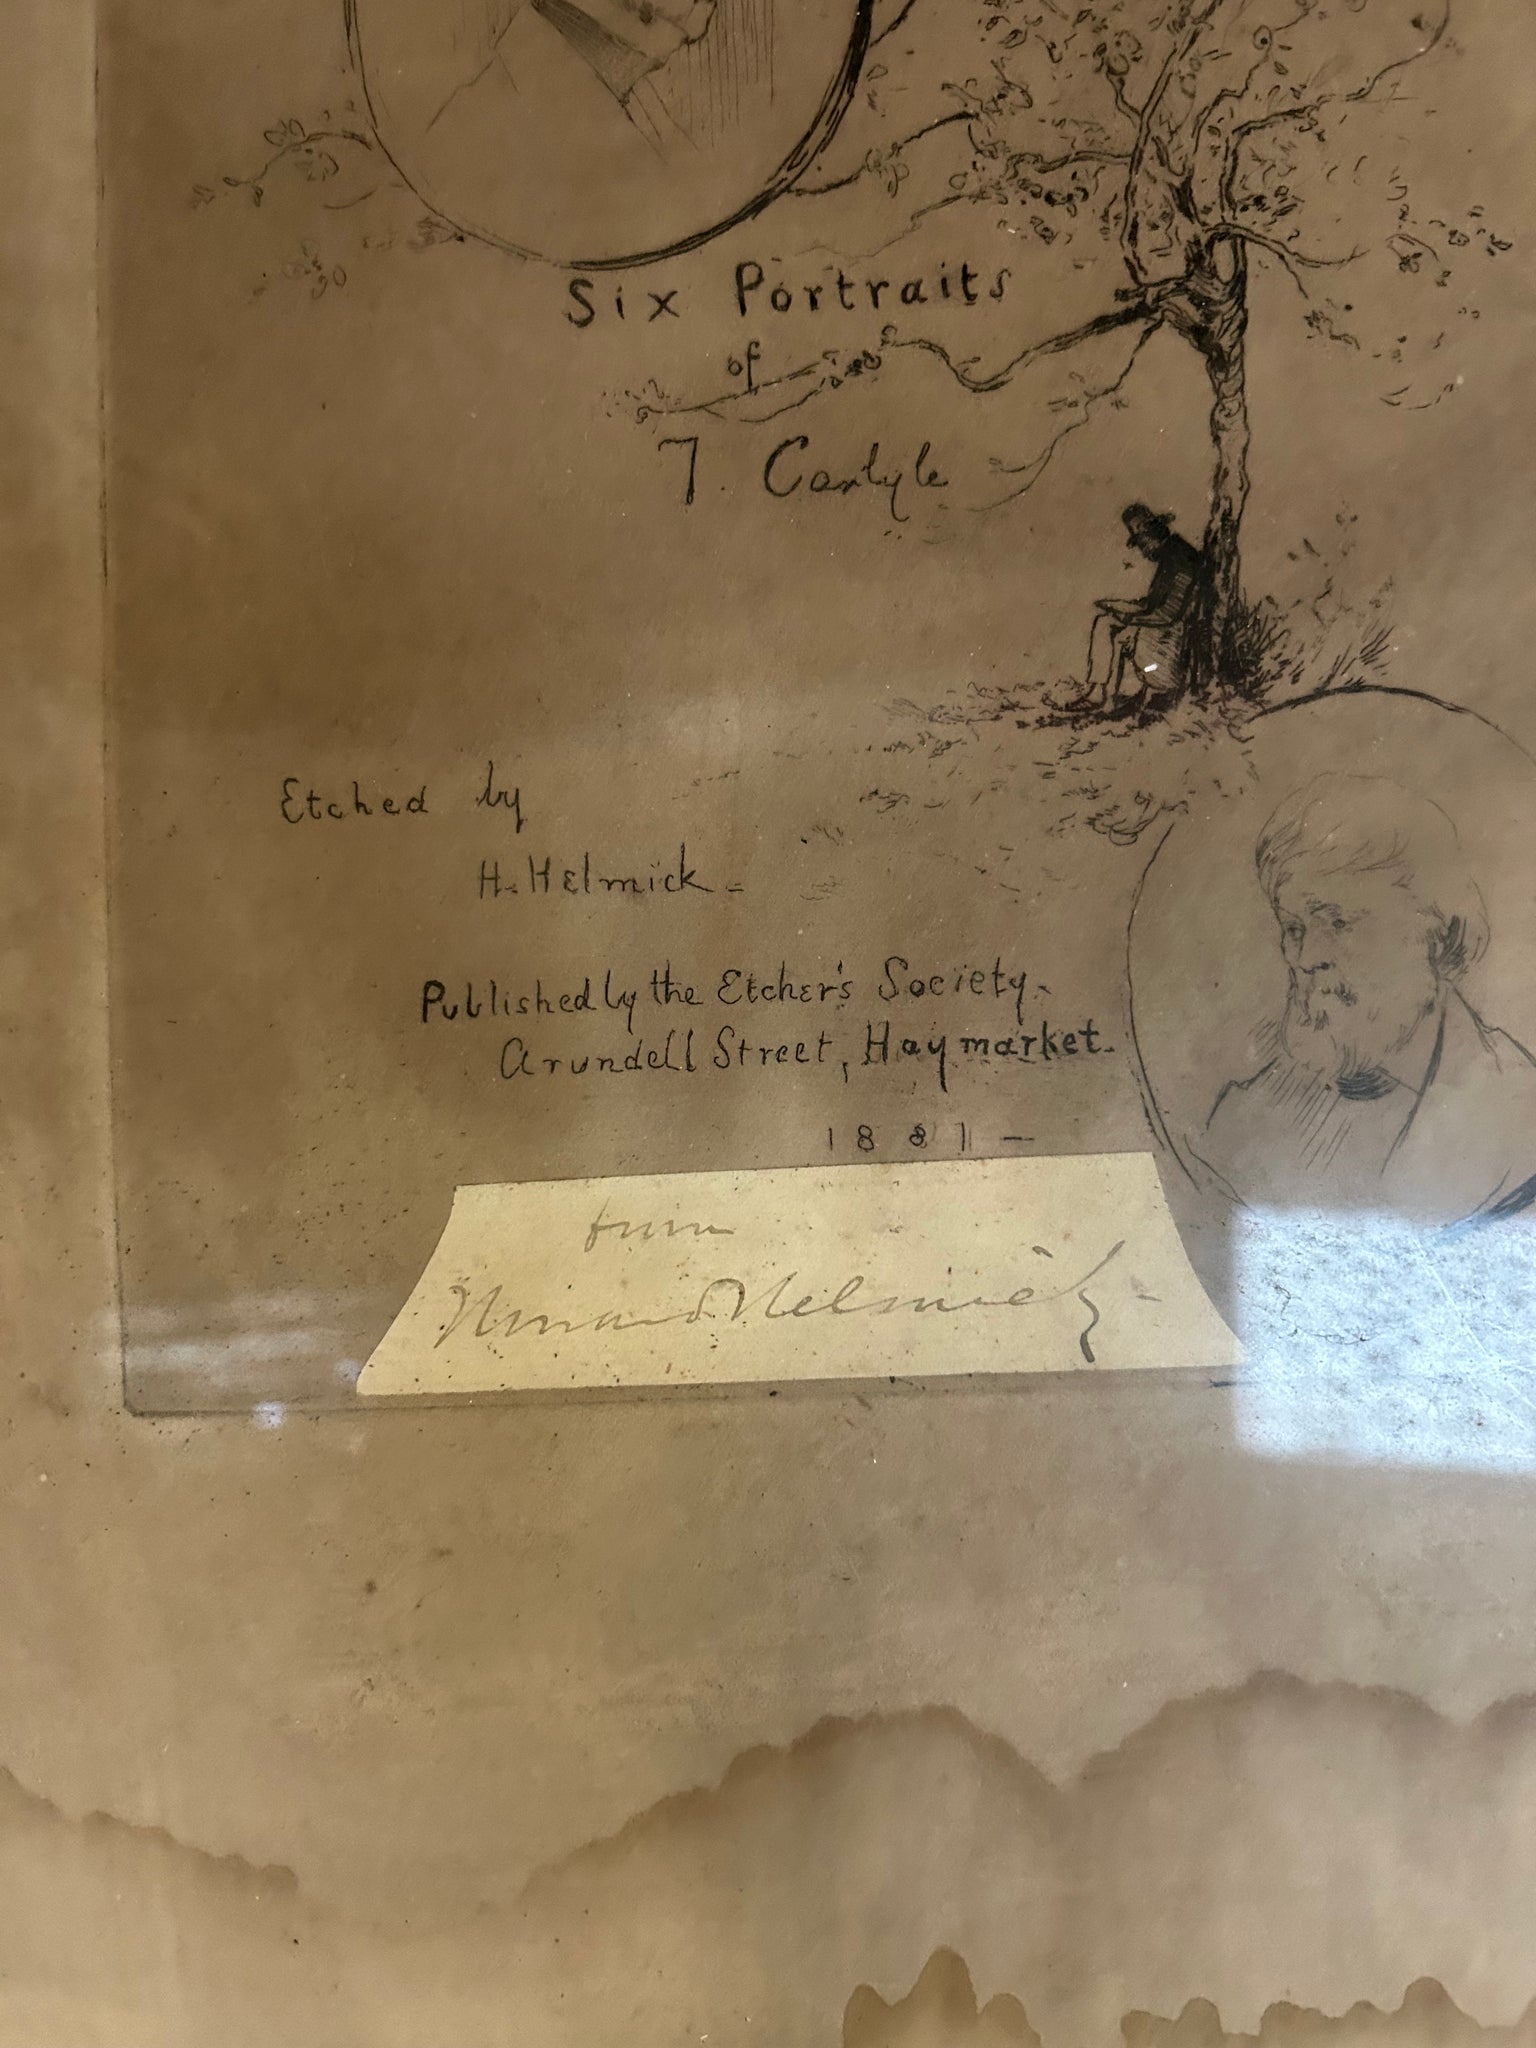 Six Portraits
of
T. Carlyle
Etched by
H. Helmick
Published by the Etcher's Society.
Arundell Street, Haymarket.
1881 —
from
Howard Helmick